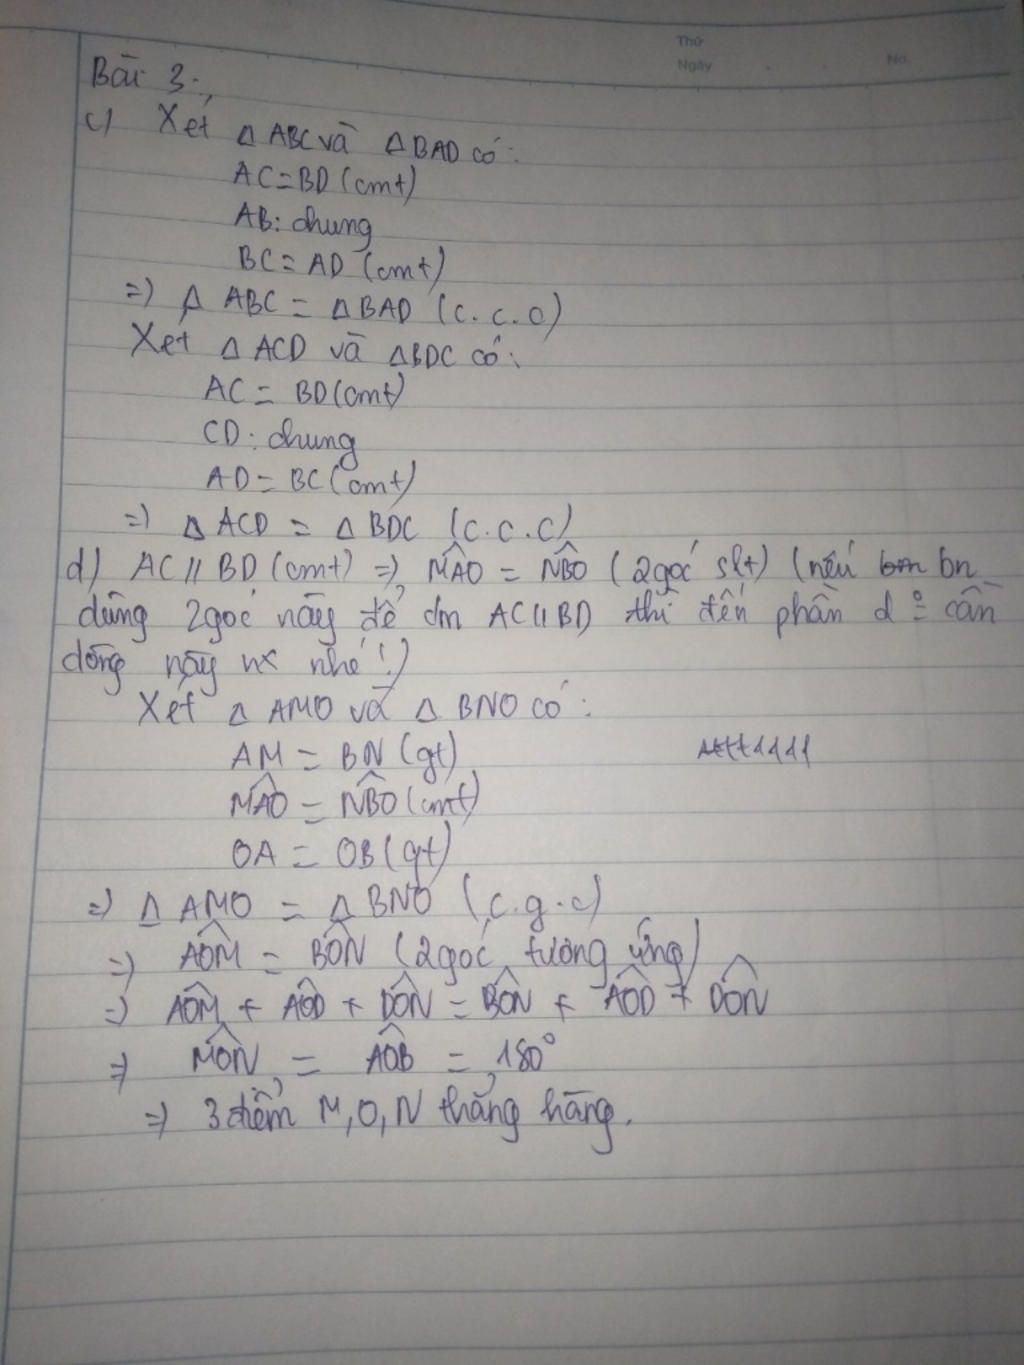 Thứ
Ngày No.
Bài 3:
c) Xét Δ ABC và Δ BAD có:
AC = BD (cmt)
AB: chung
BC = AD (cmt)
=) Δ ABC = Δ BAD (c.c.c)
Xét Δ ACD và Δ BDC có:
AC = BD (cmt)
CD: chung
AD = BC (cmt)
=) Δ ACD = Δ BDC (c.c.c)
d) AC // BD (cmt) =) M̂AO = N̂BO (2 góc slt) (nếu bn
dùng 2 góc này để cm AC // BD thì đến phần d cần
dòng này nx nhé!)
Xét Δ AMO và Δ BNO có:
AM = BN (gt)
M̂AO = N̂BO (cmt)
OA = OB (gt)
=) Δ AMO = Δ BNO (c.g.c)
=) AÔM = BÔN (2 góc tương ứng)
=) AÔM + AÔD + DÔN = BÔN + AÔD + DÔN
=) MÔN = AÔB = 180°
=) 3 điểm M, O, N thẳng hàng.